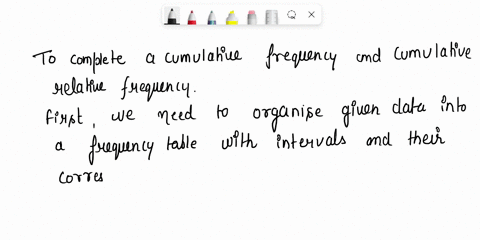 To complete a cumulative frequency and cumulative
relative frequency.
First, we need to organise given data into
a frequency table with intervals and their
corres